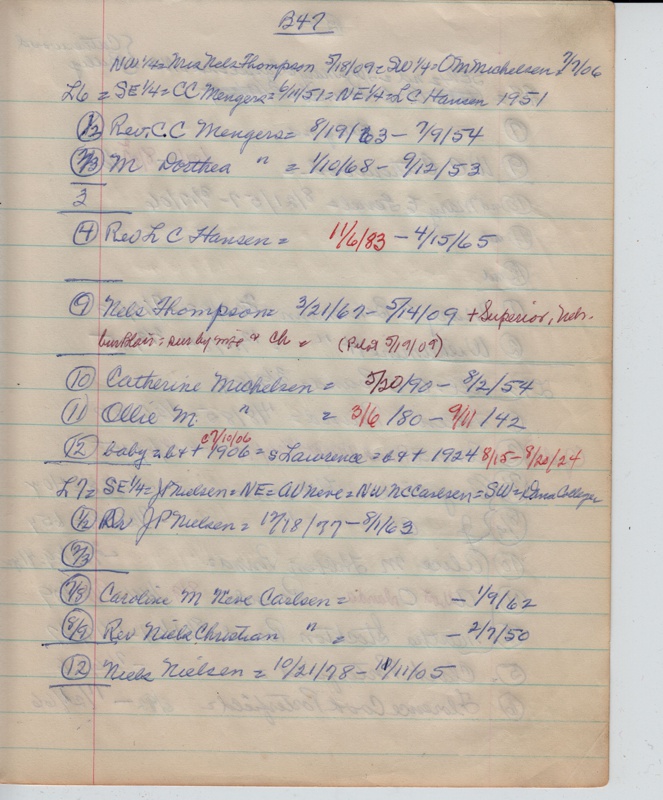 B47
NW 1/4 = Mrs Nels Thompson 5/18/09 = SW 1/4 = O M Michelsen 7/7/06
L6 = SE 1/4 = CC Mengers = 6/11/51 = NE 1/4 = L C Hansen 1951
1/2 Rev. C. C Mengers = 8/19/63 - 7/9/54
2/3 M Dorthea " = 1/10/68 - 9/12/53
3
4 Rev L C Hansen = 11/6/83 - 4/15/65
9 Nels Thompson = 3/21/67 - 5/14/09 + Superior, Neb.
bur Blair = sur by wife & ch = (Pilot 5/19/09)
10 Catherine Michelsen = 5/20/90 - 8/2/54
11 Ollie M. " = 3/6/80 - 9/11/42
c7/10/06
12 baby = b + + 1906 = s Lawrence = b + + 1924 8/15 - 8/20/24
L7 = SE 1/4 = JP Nielsen = NE = AV Neve = NW McCarlsen = SW = Dana College
1/2 Dr JP Nielsen = 12/18/77 - 8/1/63
2/3
7/8 Caroline M Neve Carlsen = - 1/9/62
8/9 Rev Niels Christian " = - 2/7/50
12 Niels Nielsen = 10/21/78 - 11/11/05